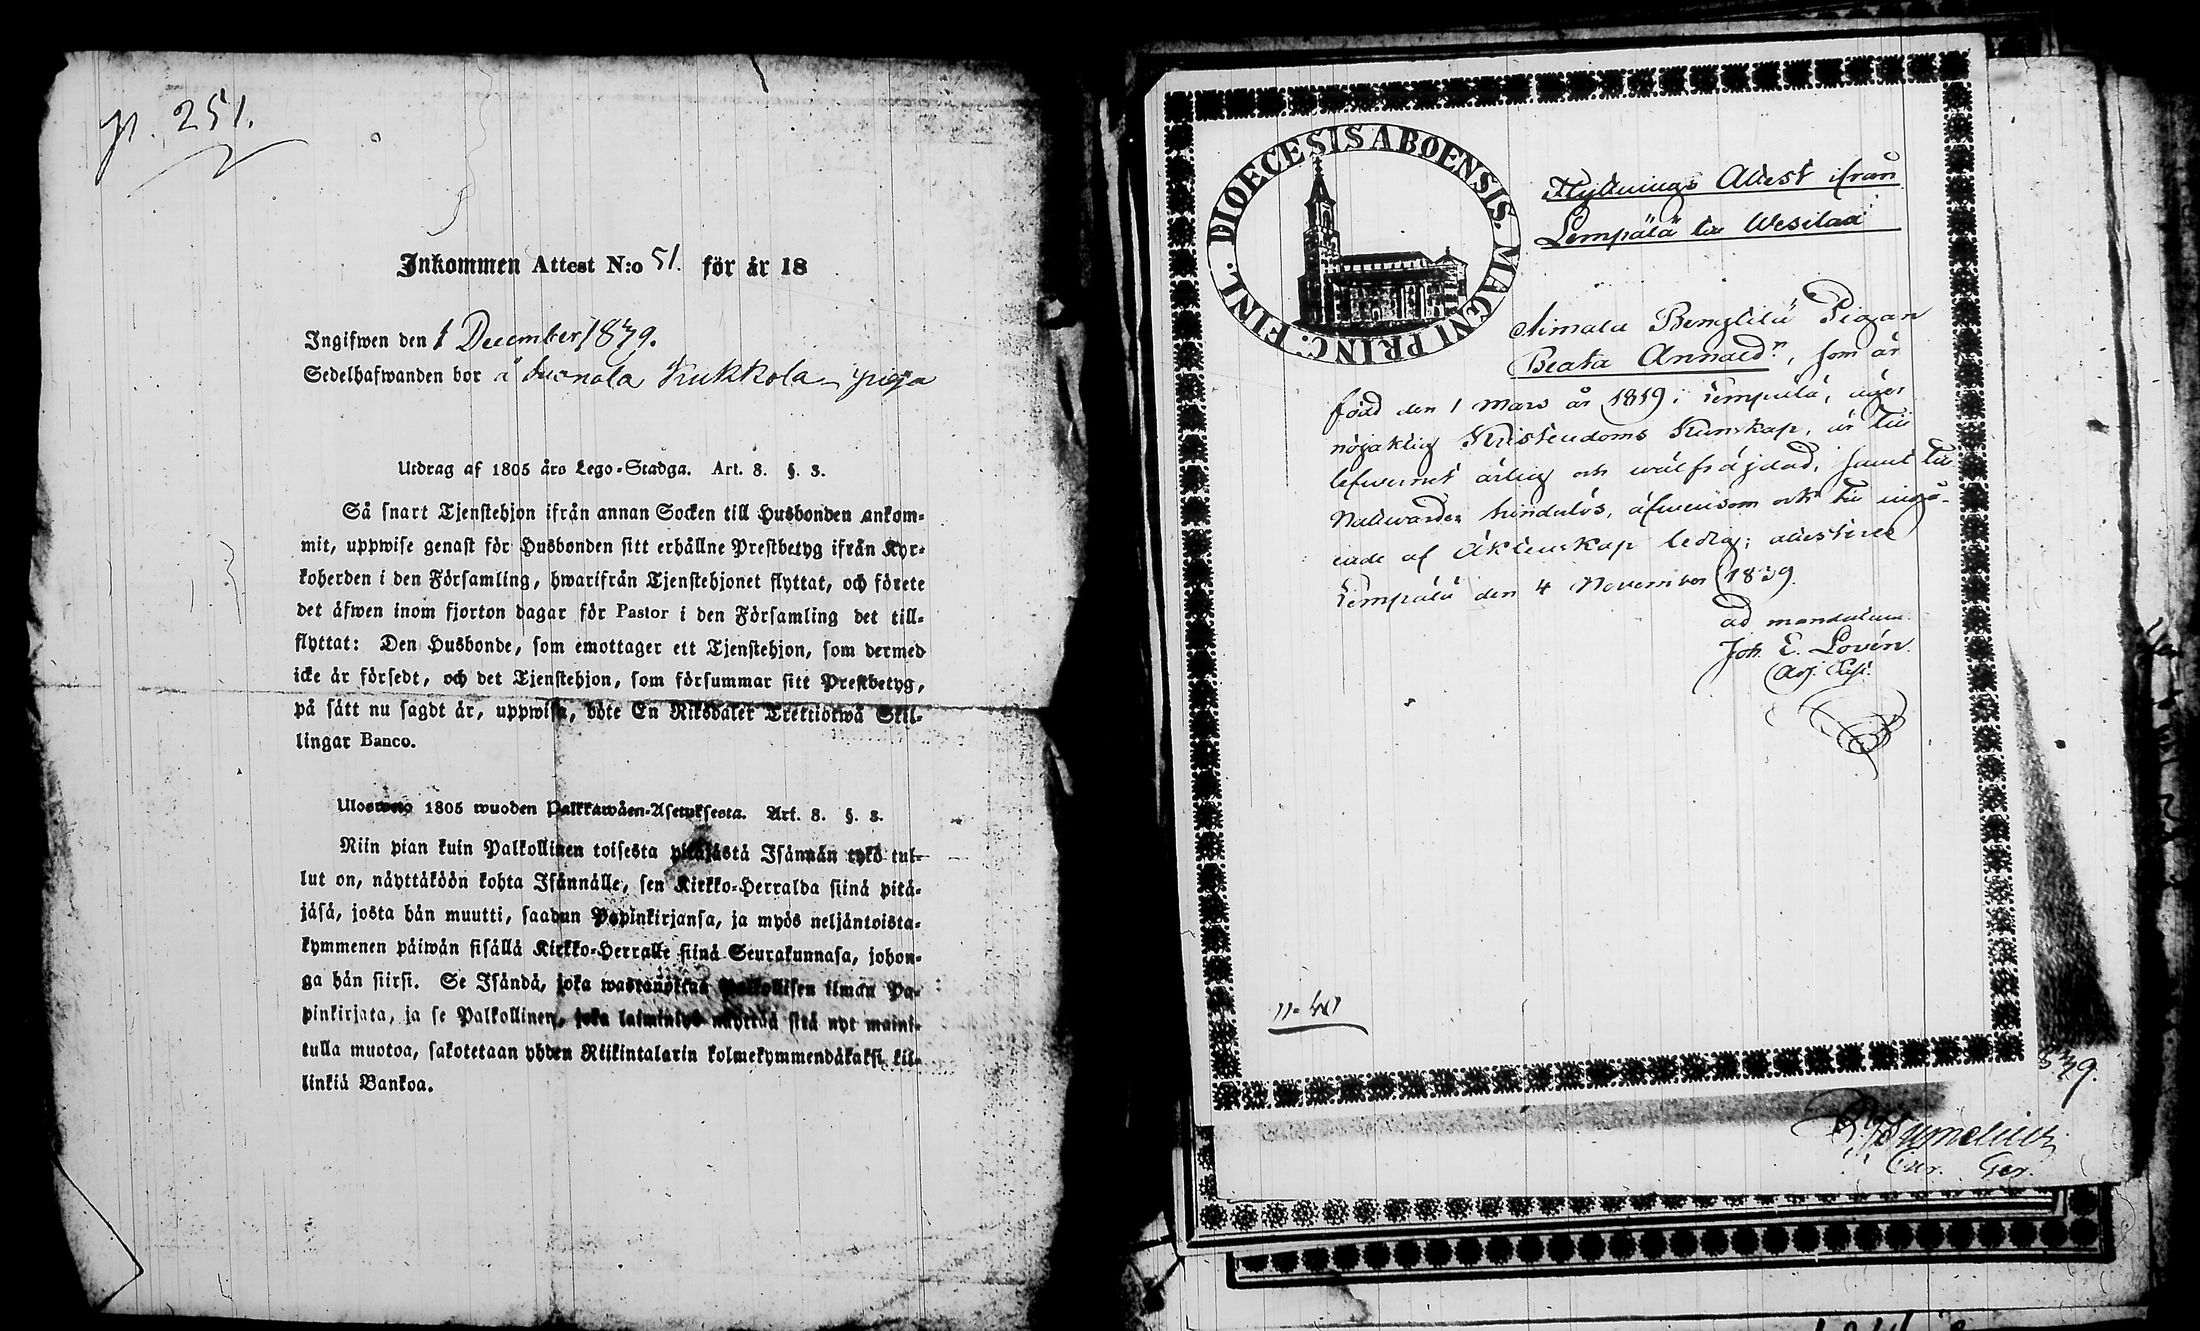 p. 251.
Inkommen Attest N:o 51. för år 18
Ingifwen den 1 December 1839.
Sedelhafwanden bor å Suonala Kukkola piga
Utdrag af 1805 års Lego-Stadga. Art. 8. §. 3.
Så snart Tjenstehjon ifrån annan Socken till Husbonden ankom-
mit, uppwise genast för Husbonden sitt erhållne Prestbetyg ifrån Kyr-
koherden i den Församling, hwarifrån Tjenstehjonet flyttat, och förete
det äfwen inom fjorton dagar för Pastor i den Församling det till-
flyttat: Den Husbonde, som emottager ett Tjenstehjon, som dermed
icke är försedt, och det Tjenstehjon, som försummar sitt Prestbetyg,
på sätt nu sagdt är, uppwisa, böte En Riksdaler Trettiotwå Skil-
lingar Banco.
Ulosweto 1805 wuoden Palkkawäen-Asetuksesta. Art. 8. §. 3.
Niin pian kuin Palkollinen toisesta pitäjästä Isännän tykö tul-
lut on, näyttäköön kohta Isännälle, sen Kirkko-Herralda siinä pitä-
jäsä, josta hän muutti, saadun Papinkirjansa, ja myös neljäntoista-
kymmenen päiwän sisällä Kirkko-Herralle siinä Seurakunnasa, johon-
ga hän siirsi. Se Isändä, joka wastanottaa Palkollisen ilman Pa-
pinkirjata, ja se Palkollinen, joka laiminlyö näyttää sitä nyt maini-
tulla muotoa, sakotetaan yhden Riikintalarin kolmekymmendäkaksi kil-
linkiä Bankoa.
DIOECESIS ABOENSIS. MAGNI PRINC: FINL.
Flyttnings Attest ifrån
Lempälä till Wesilax
Aimala Bengtilä Pigan
Beata Annaedr, som är
född den 1 mars år 1819 i Lempälä, äger
nöjaktig Kristendoms Kunskap, är till
lefwernet ärlig och wälfrägdad, samt till
Nattwarden hinderlös, äfwensom ock till ingå-
ende af Äktenskap ledig; attesteras
Lempälä den 4 November 1839.
ad mandatum
Joh. E. Lovén
Adj.
839.